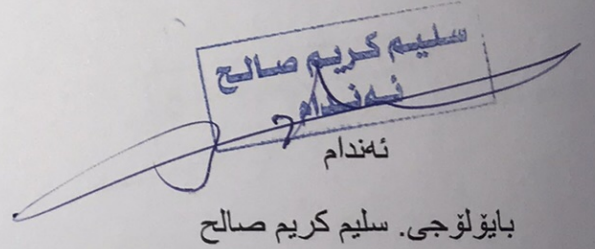 سليم كريم صالح
ئەندام
ئەندام
بايۆلۆجى. سليم كريم صالح